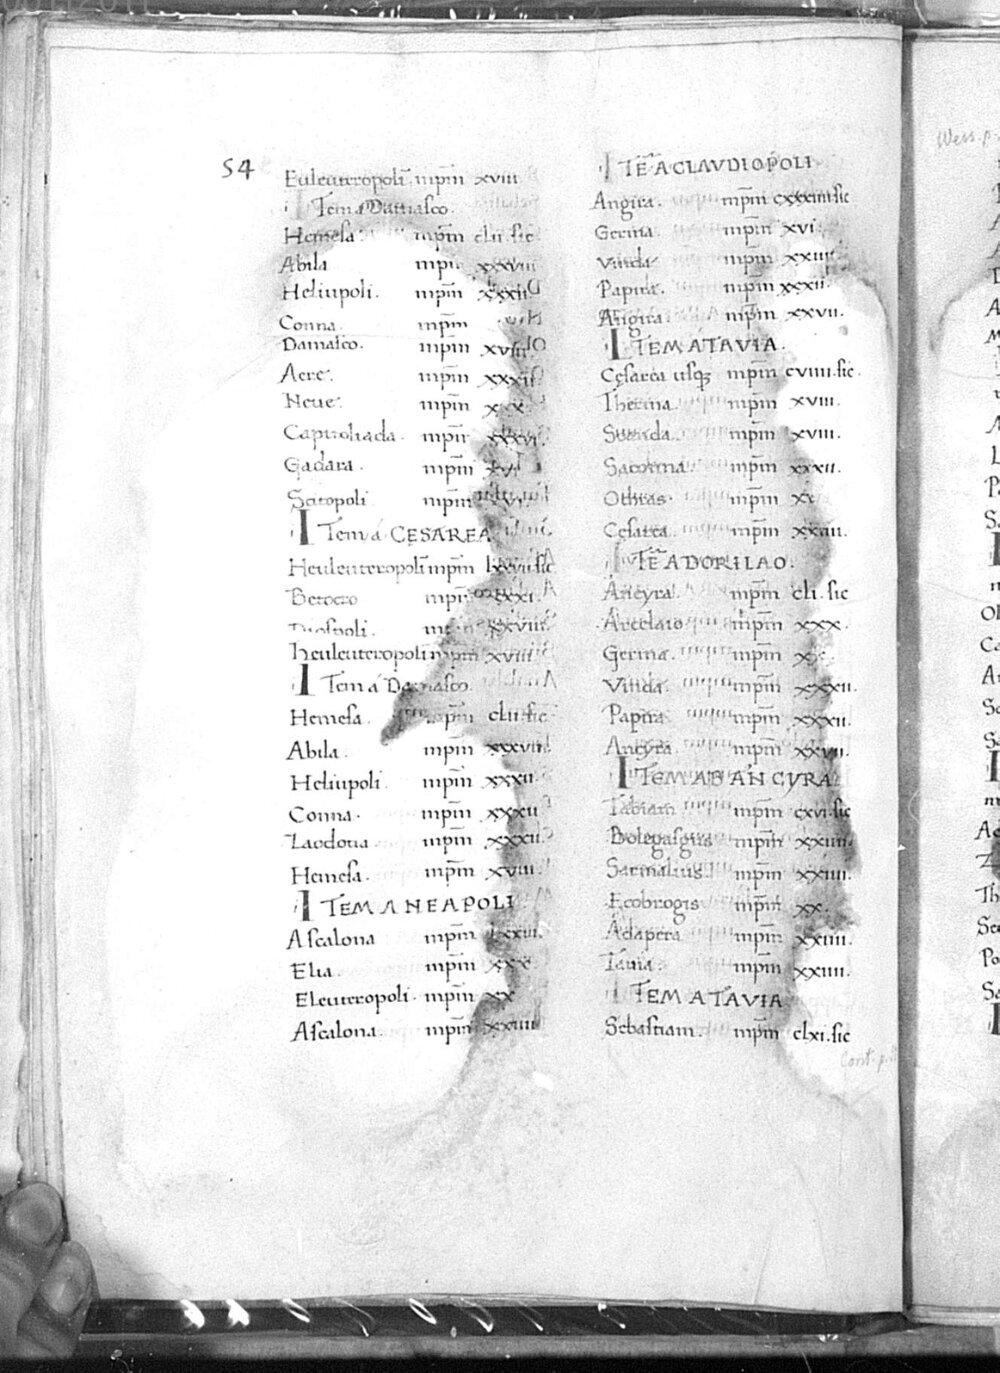 54
Euleuteropoli mpm xviii.
Item a Damasco.
Hemesa mpm clii. sic
Abila mpm xxxviii
Heliupoli. mpm xxxii
Conna. mpm
Damasco. mpm xviii
Aere. mpm xxxii
Neue. mpm xxx.
Capitoliada. mpm xxxvi
Gadara. mpm xvi
Scitopoli mpm xvi
Item á CESAREA
Heuleuteropoli mpm lxxvii sic
Betoero mpm xxxi.
mpm xxviii
heuleuteropoli mpm xviii
Item á Damasco.
Hemesa. mpm clii. sic
Abila. mpm xxxviii
Heliupoli. mpm xxxii
Conna. mpm xxxii
Laodotia mpm xxxii.
Hemesa. mpm xviii.
ITEM A NEAPOLI
Ascalona mpm lxxiii.
Elia. mpm xxx
Eleuteropoli. mpm xx
Ascalona. mpm xxiiii
ITE A CLAVDIOPOLI
Angira. mpm cxxxiiii sic
Germa. mpm xvi
Vinda mpm xxxii
Papira. mpm xxxii.
Angira. mpm xxvii.
ITEM A TAVIA.
Cęsarea usq; mpm cviiii. sic.
Therma. mpm xviii.
Soanda. mpm xviii.
Sacorma. mpm xxxii.
Othras. mpm xv
Cęsarea. mpm xxiiii.
ITE A DORILAO.
Ancyra. mpm cli. sic
Arcelaio mpm xxx.
Germa. mpm xx.
Vinda. mpm xxxii.
Papira. mpm xxxii.
Ancyra. mpm xxvii.
ITEM AB ANCYRA
Tabiam mpm cxvi. sic
Bolegasgus mpm xxiiii.
Sarmalius. mpm xxiiii.
Ecobrogis mpm xx.
Adapera mpm xxiiii.
Tauia. mpm xxiiii.
ITEM A TAVIA
Sebastiam. mpm clxi. sic
Cont. p.
Wess. p.